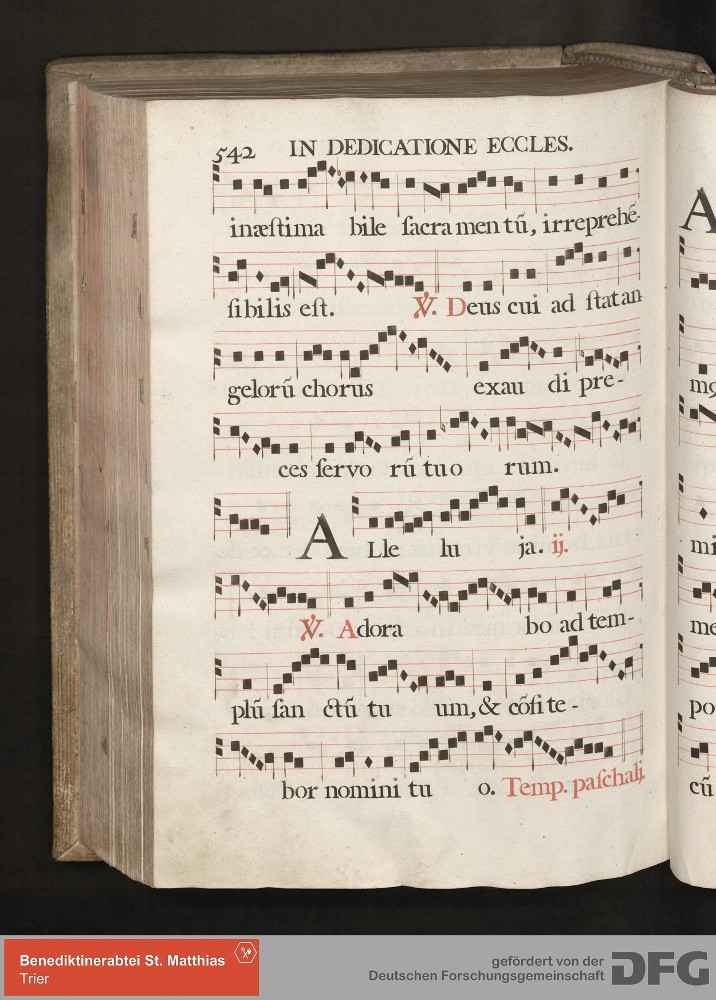 542 IN DEDICATIONE ECCLES.
inæstima bile sacra men tũ, irreprehẽ-
sibilis est. ℣. Deus cui ad stat an
gelorũ chorus exau di pre-
ces servo rũ tuo rum.
ALle lu ja. ij.
℣. Adora bo ad tem-
plũ san ctũ tu um, & cõfite-
bor nomini tu o. Temp. paschali.
A
mg
mi
me
po
cũ
Benediktinerabtei St. Matthias
Trier
gefördert von der
Deutschen Forschungsgemeinschaft DFG